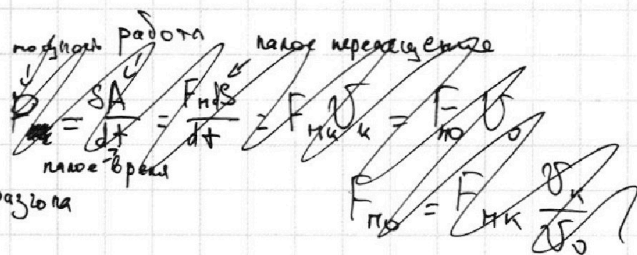 мощность работа малое перемещение
P = δA/dt = F_п dS/dt = F_пк υ_к = F_по υ_о
малое время
разгона
F_по = F_пк υ_к/υ_о